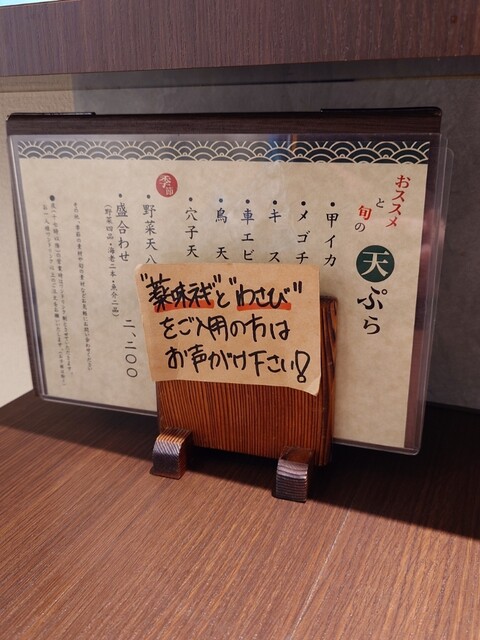 おススメ
と
旬の
天ぷら
・甲イカ
・メゴチ
・キス
・車エビ
・鳥天
・穴子天
季節
・野菜天八
・盛合わせ
(野菜四品・海老二本・魚介二品)
二、二〇〇
"薬味ネギ"と"わさび"
をご入用の方は
お声がけ下さい!